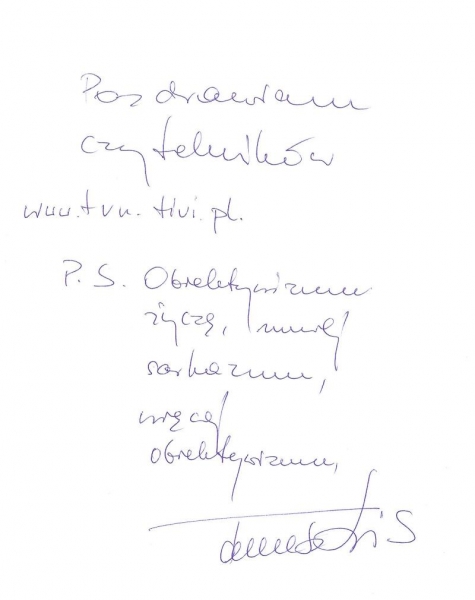 Pozdrawiam
czytelników
www.tvn.tivi.pl.
P.S. Obiektywizmu
życzę, mniej
sarkazmu,
więcej
obiektywizmu,